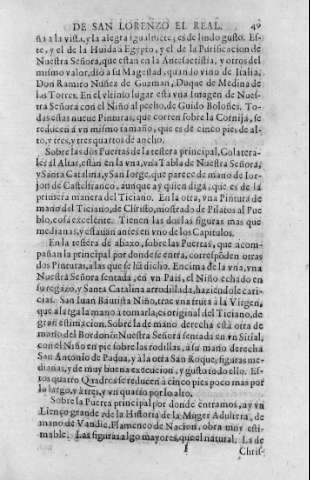 DE SAN LORENZO EL REAL. 46
ña a la vista, y la alegra igualmente; es de lindo gusto. Es-
te, y el de la Huida a Egypto, y el de la Purificacion de
Nuestra Señora, que estan en la Antesacristia, y otros del
mismo valor, dió a su Magestad, quando vino de Italia,
Don Ramiro Nuñez de Guzman, Duque de Medina de
las Torres. En el vltimo lugar esta vna Imagen de Nues-
tra Señora con el Niño al pecho, de Guido Boloñes. To-
das estas nueue Pinturas, que corren sobre la Cornija, se
reducen á vn mismo tamaño, que es de cinco pies de al-
to, y tres, y tres quartos de ancho.
Sobre las dos Puertas de la testera principal, Colatera-
les al Altar, estàn en la vna, vna Tabla de Nuestra Señora,
y Santa Catalina, y San Iorge, que parece de mano de Ior-
jon de Castelfranco, aunque ay quien diga, que es de la
primera manera del Ticiano. En la otra, vna Pintura de
mano del Ticiano, de Christo, mostrado de Pilatos al Pue
blo, cosa excelente. Tienen las dos las figuras mas que
medianas, y estauan antes en vno de los Capitulos.
En la testera de abaxo, sobre las Puertas, que acom-
pañan la principal por donde se entra, corresponden otras
dos Pinturas, a las que se hà dicho. Encima de la vna, vna
Nuestra Señora sentada, en vn Pais, el Niño echado en
su regazo, y Santa Catalina arrodillada, haziendole cari-
cias. San Iuan Bautista Niño, trae vna fruta à la Virgen,
que alarga la mano à tomarla; es original del Ticiano, de
gran estimacion. Sobre la de mano derecha està otra de
mano del Bordonòn Nuestra Señora sentada en vn Sitial,
con el Niño en pie sobre las rodillas, à su mano derecha
San Antonio de Padua, y à la otra San Roque, figuras me-
dianas, y de muy buena execucion, y gusto todo ello. Es-
tos quatro Quadros se reducen à cinco pies poco mas por
lo largo, y à tres, y vn quarto por lo alto.
Sobre la Puerta principal por donde entramos, ay vn
Lienço grande de la Historia de la Muger Adultera, de
mano de Vandic, Flamenco de Nacion, obra muy esti-
mable. Las figuras algo mayores, que el natural. La de
Chris-